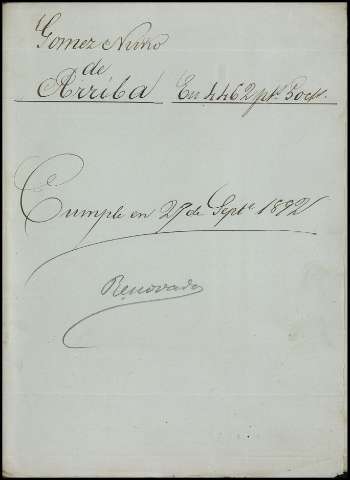 Gomez Nuño
de
Arriba En 4462 pts. 50 cts.
Cumple en 29 de Septe. 1892
Renovado